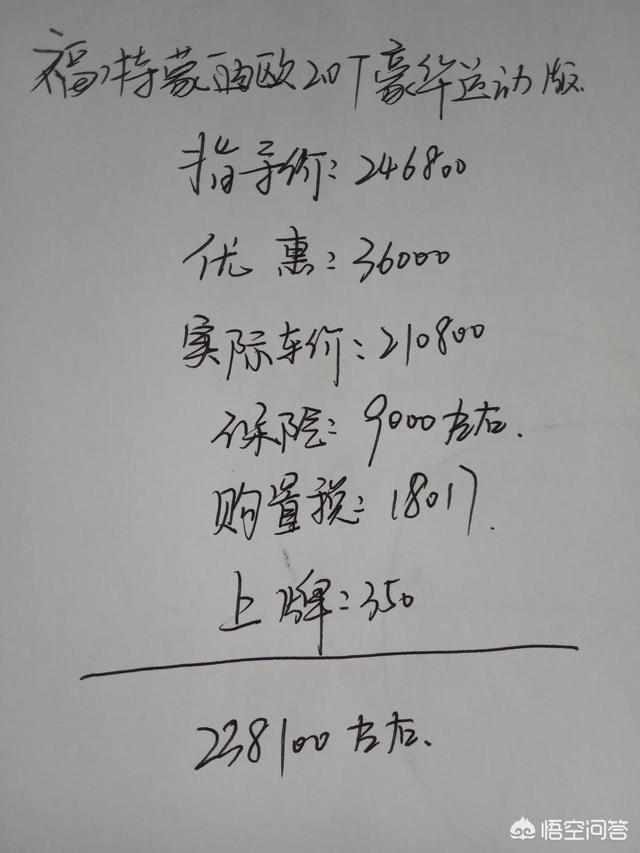 福特蒙迪欧2.0T豪华运动版.
指导价:246800
优惠:36000
实际车价:210800
保险:9000左右.
购置税:18017.
上牌:350
238100左右.
悟空问答